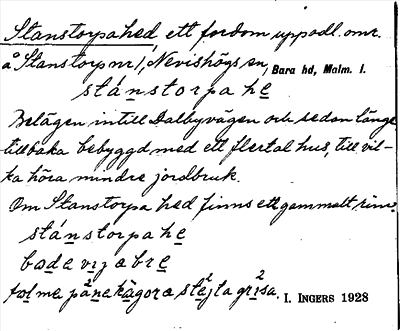 Stanstorpahed ett fordom uppodl. omr.
å Stanstorp nr 1, Nevishögs sn, Bara hd, Malm. l.
stánstorpa he
Belägen intill Dalbyvägen och sedan länge
tillbaka bebyggd med ett flertal hus, till vil-
ka höra mindre jordbruk.
Om Stanstorpa hed finns ett gammalt rim:
stánstorpa he
bada vija bre
pånekågora grisa. I. INGERS 1928